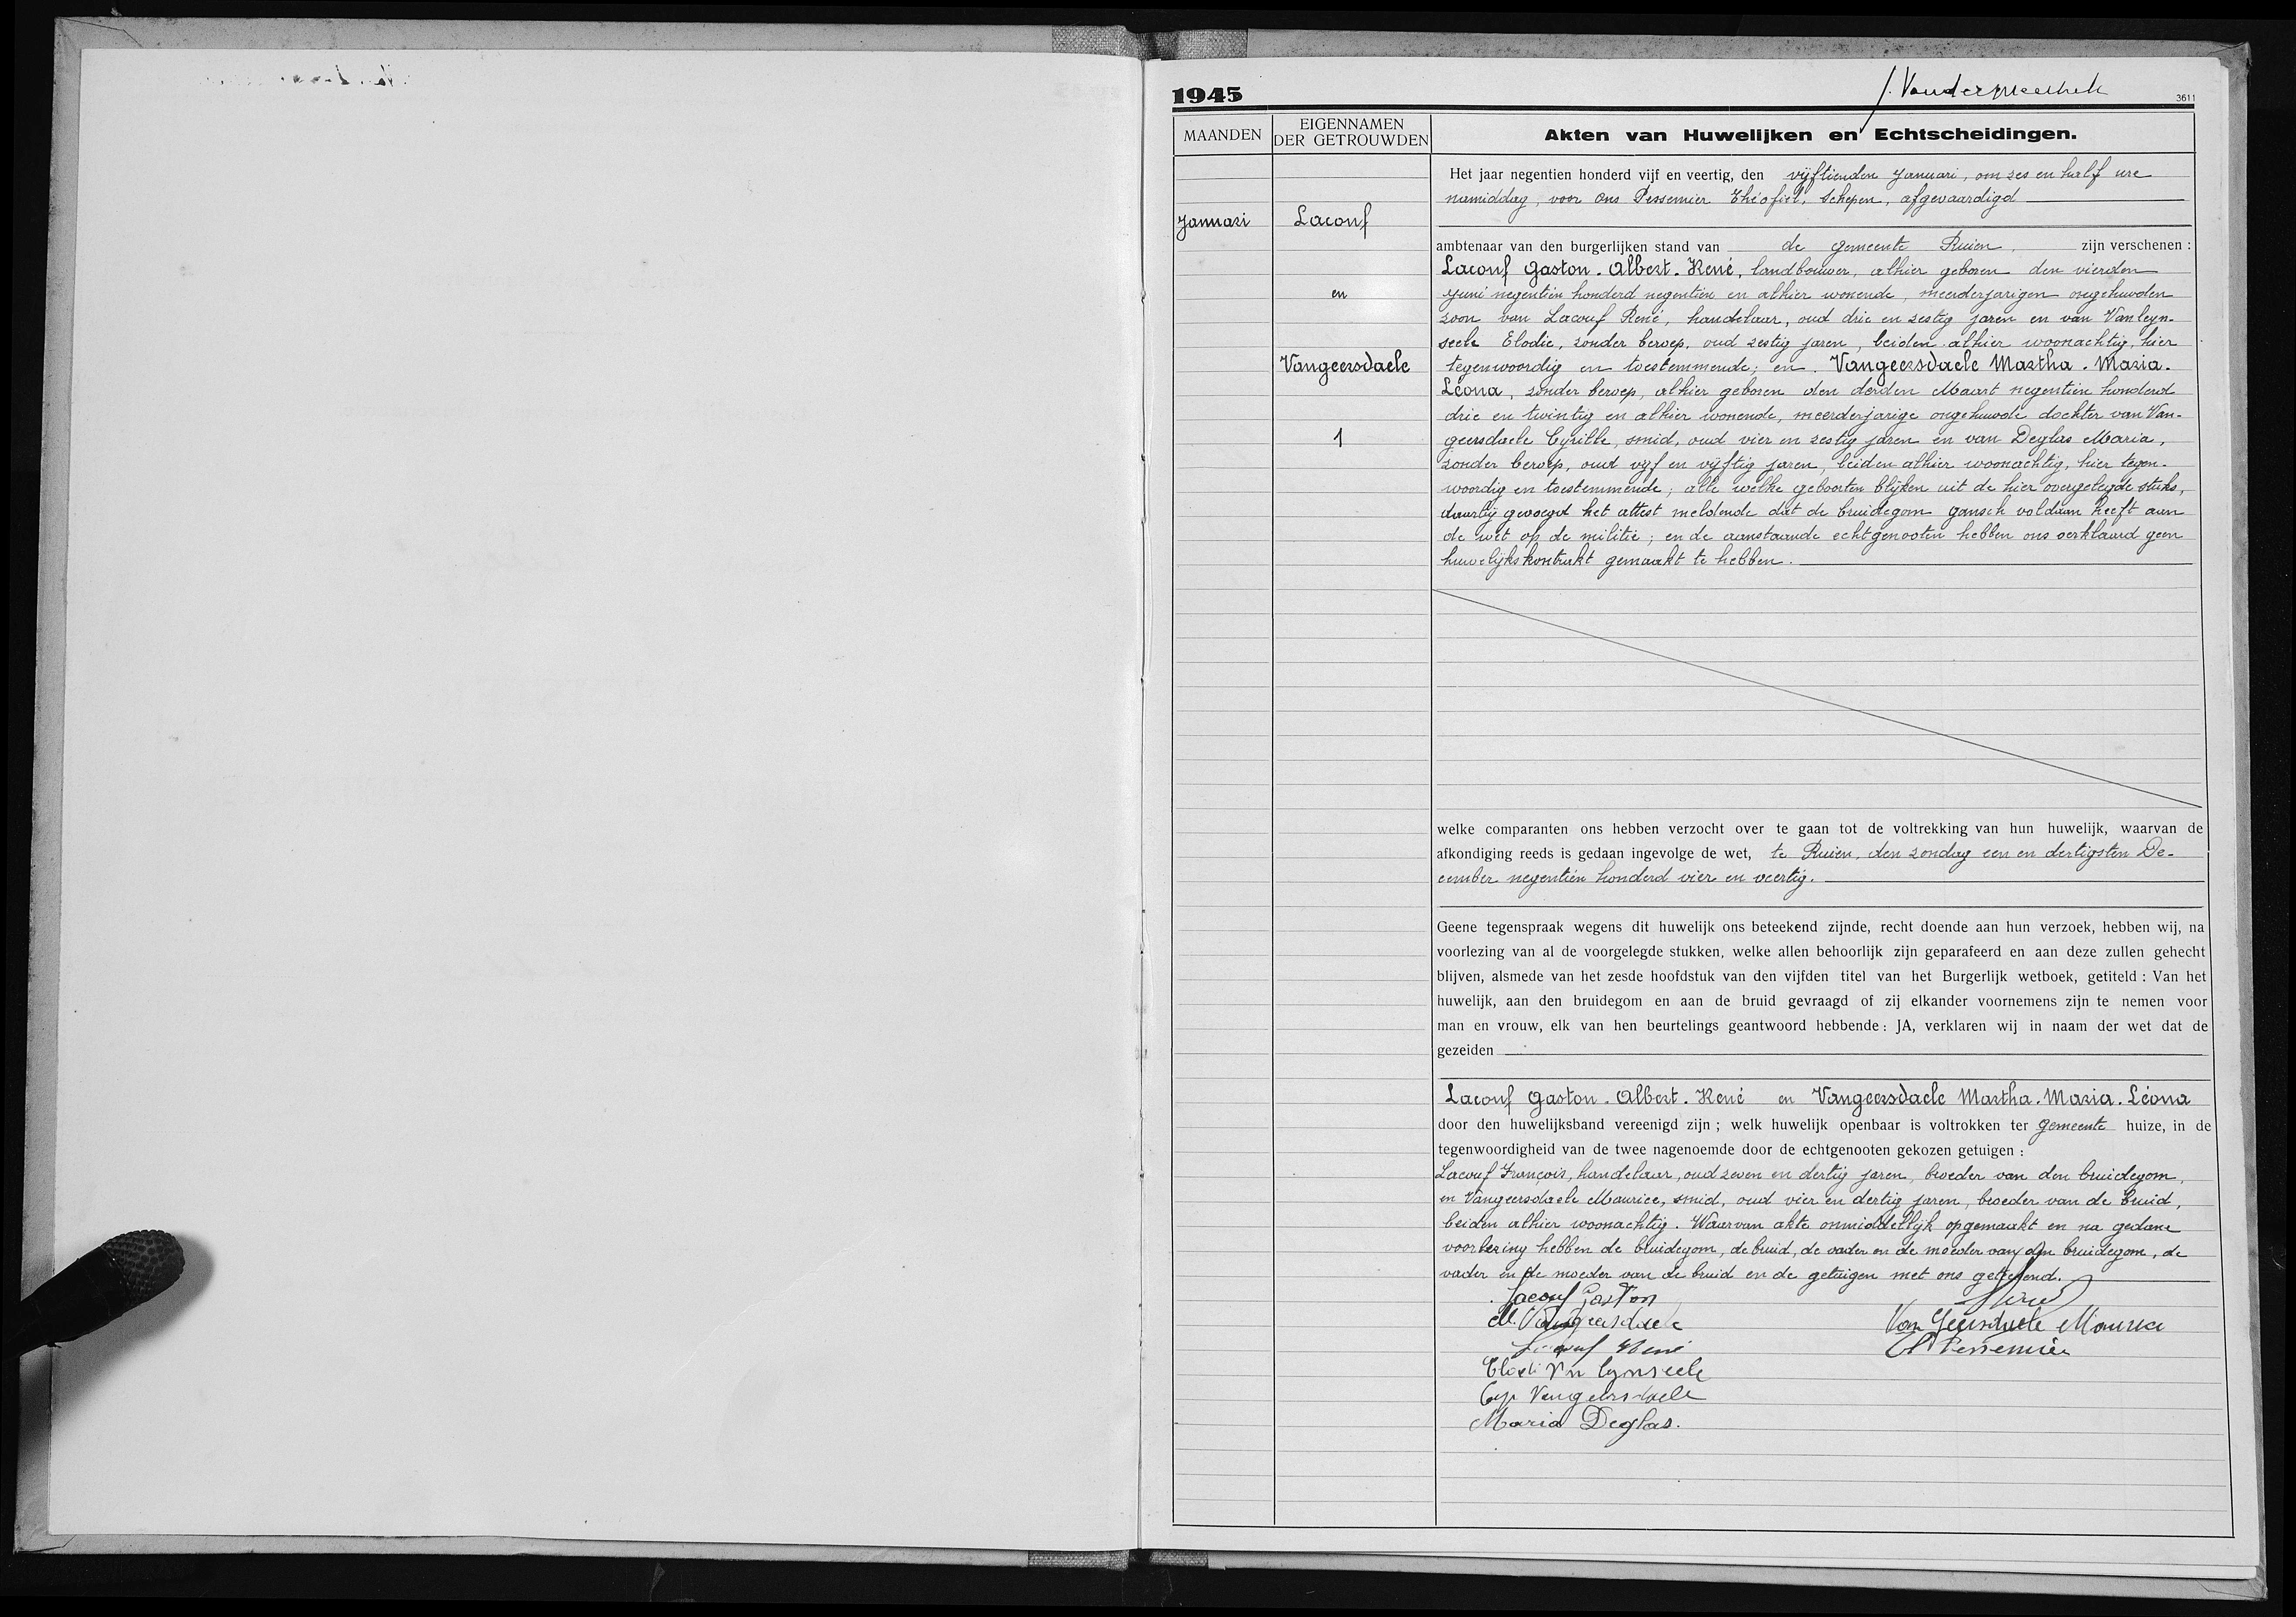 1945
J. Vandermeersch
3611
MAANDEN
EIGENNAMEN
DER GETROUWDEN
Akten van Huwelijken en Echtscheidingen.
Januari
Lacouf
en
Vangeersdaele
1
Het jaar negentien honderd vijf en veertig, den vijftienden Januari, om zes en half ure
namiddag, voor Ons Pessemier Théofiel, Schepen, afgevaardigd
ambtenaar van den burgerlijken stand van de gemeente Ruien, zijn verschenen :
Lacouf Gaston-Albert-René, landbouwer, alhier geboren den vierden
Juni negentien honderd negentien en alhier wonende, meerderjarigen ongehuwden
zoon van Lacouf René, handelaar, oud drie en zestig jaren en van Vanleyn-
seele Elodie, zonder beroep, oud zestig jaren, beiden alhier woonachtig, hier
tegenwoordig en toestemmende; en Vangeersdaele Martha-Maria-
Léona, zonder beroep, alhier geboren den derden Maart negentien honderd
drie en twintig en alhier wonende, meerderjarige ongehuwde dochter van Van-
geersdaele Cyrille, smid, oud vier en zestig jaren en van Deglas Maria,
zonder beroep, oud vijf en vijftig jaren, beiden alhier woonachtig, hier tegen-
woordig en toestemmende; alle welke geboorten blijken uit de hier overgelegde stuks,
daarbij gevoegd het attest meldende dat de bruidegom gansch voldaan heeft aan
de wet op de militie; en de aanstaande echtgenooten hebben ons verklaard geen
huwelijkskontrakt gemaakt te hebben.
welke comparanten ons hebben verzocht over te gaan tot de voltrekking van hun huwelijk, waarvan de
afkondiging reeds is gedaan ingevolge de wet, te Ruien, den zondag een en dertigsten De-
cember negentien honderd vier en veertig.
Geene tegenspraak wegens dit huwelijk ons beteekend zijnde, recht doende aan hun verzoek, hebben wij, na
voorlezing van al de voorgelegde stukken, welke allen behoorlijk zijn geparafeerd en aan deze zullen gehecht
blijven, alsmede van het zesde hoofdstuk van den vijfden titel van het Burgerlijk wetboek, getiteld : Van het
huwelijk, aan den bruidegom en aan de bruid gevraagd of zij elkander voornemens zijn te nemen voor
man en vrouw, elk van hen beurtelings geantwoord hebbende : JA, verklaren wij in naam der wet dat de
gezeiden
Lacouf Gaston-Albert-René en Vangeersdaele Martha-Maria-Léona
door den huwelijksband vereenigd zijn ; welk huwelijk openbaar is voltrokken ter gemeente huize, in de
tegenwoordigheid van de twee nagenoemde door de echtgenooten gekozen getuigen :
Lacouf François, handelaar, oud zeven en dertig jaren, broeder van den bruidegom,
en Vangeersdaele Maurice, smid, oud vier en dertig jaren, broeder van de bruid,
beiden alhier woonachtig. Waarvan akte onmiddellijk opgemaakt en na gedane
voorlezing hebben de bruidegom, de bruid, de vader en de moeder van den bruidegom, de
vader en de moeder van de bruid en de getuigen met ons geteekend.
Lacouf Gaston
M. Vangeersdaele
Van Geersdaele Maurice
Lacouf René
Th Pessemier
Elodi Van Lynseele
Cyr Vangeersdaele
Maria Deglas.